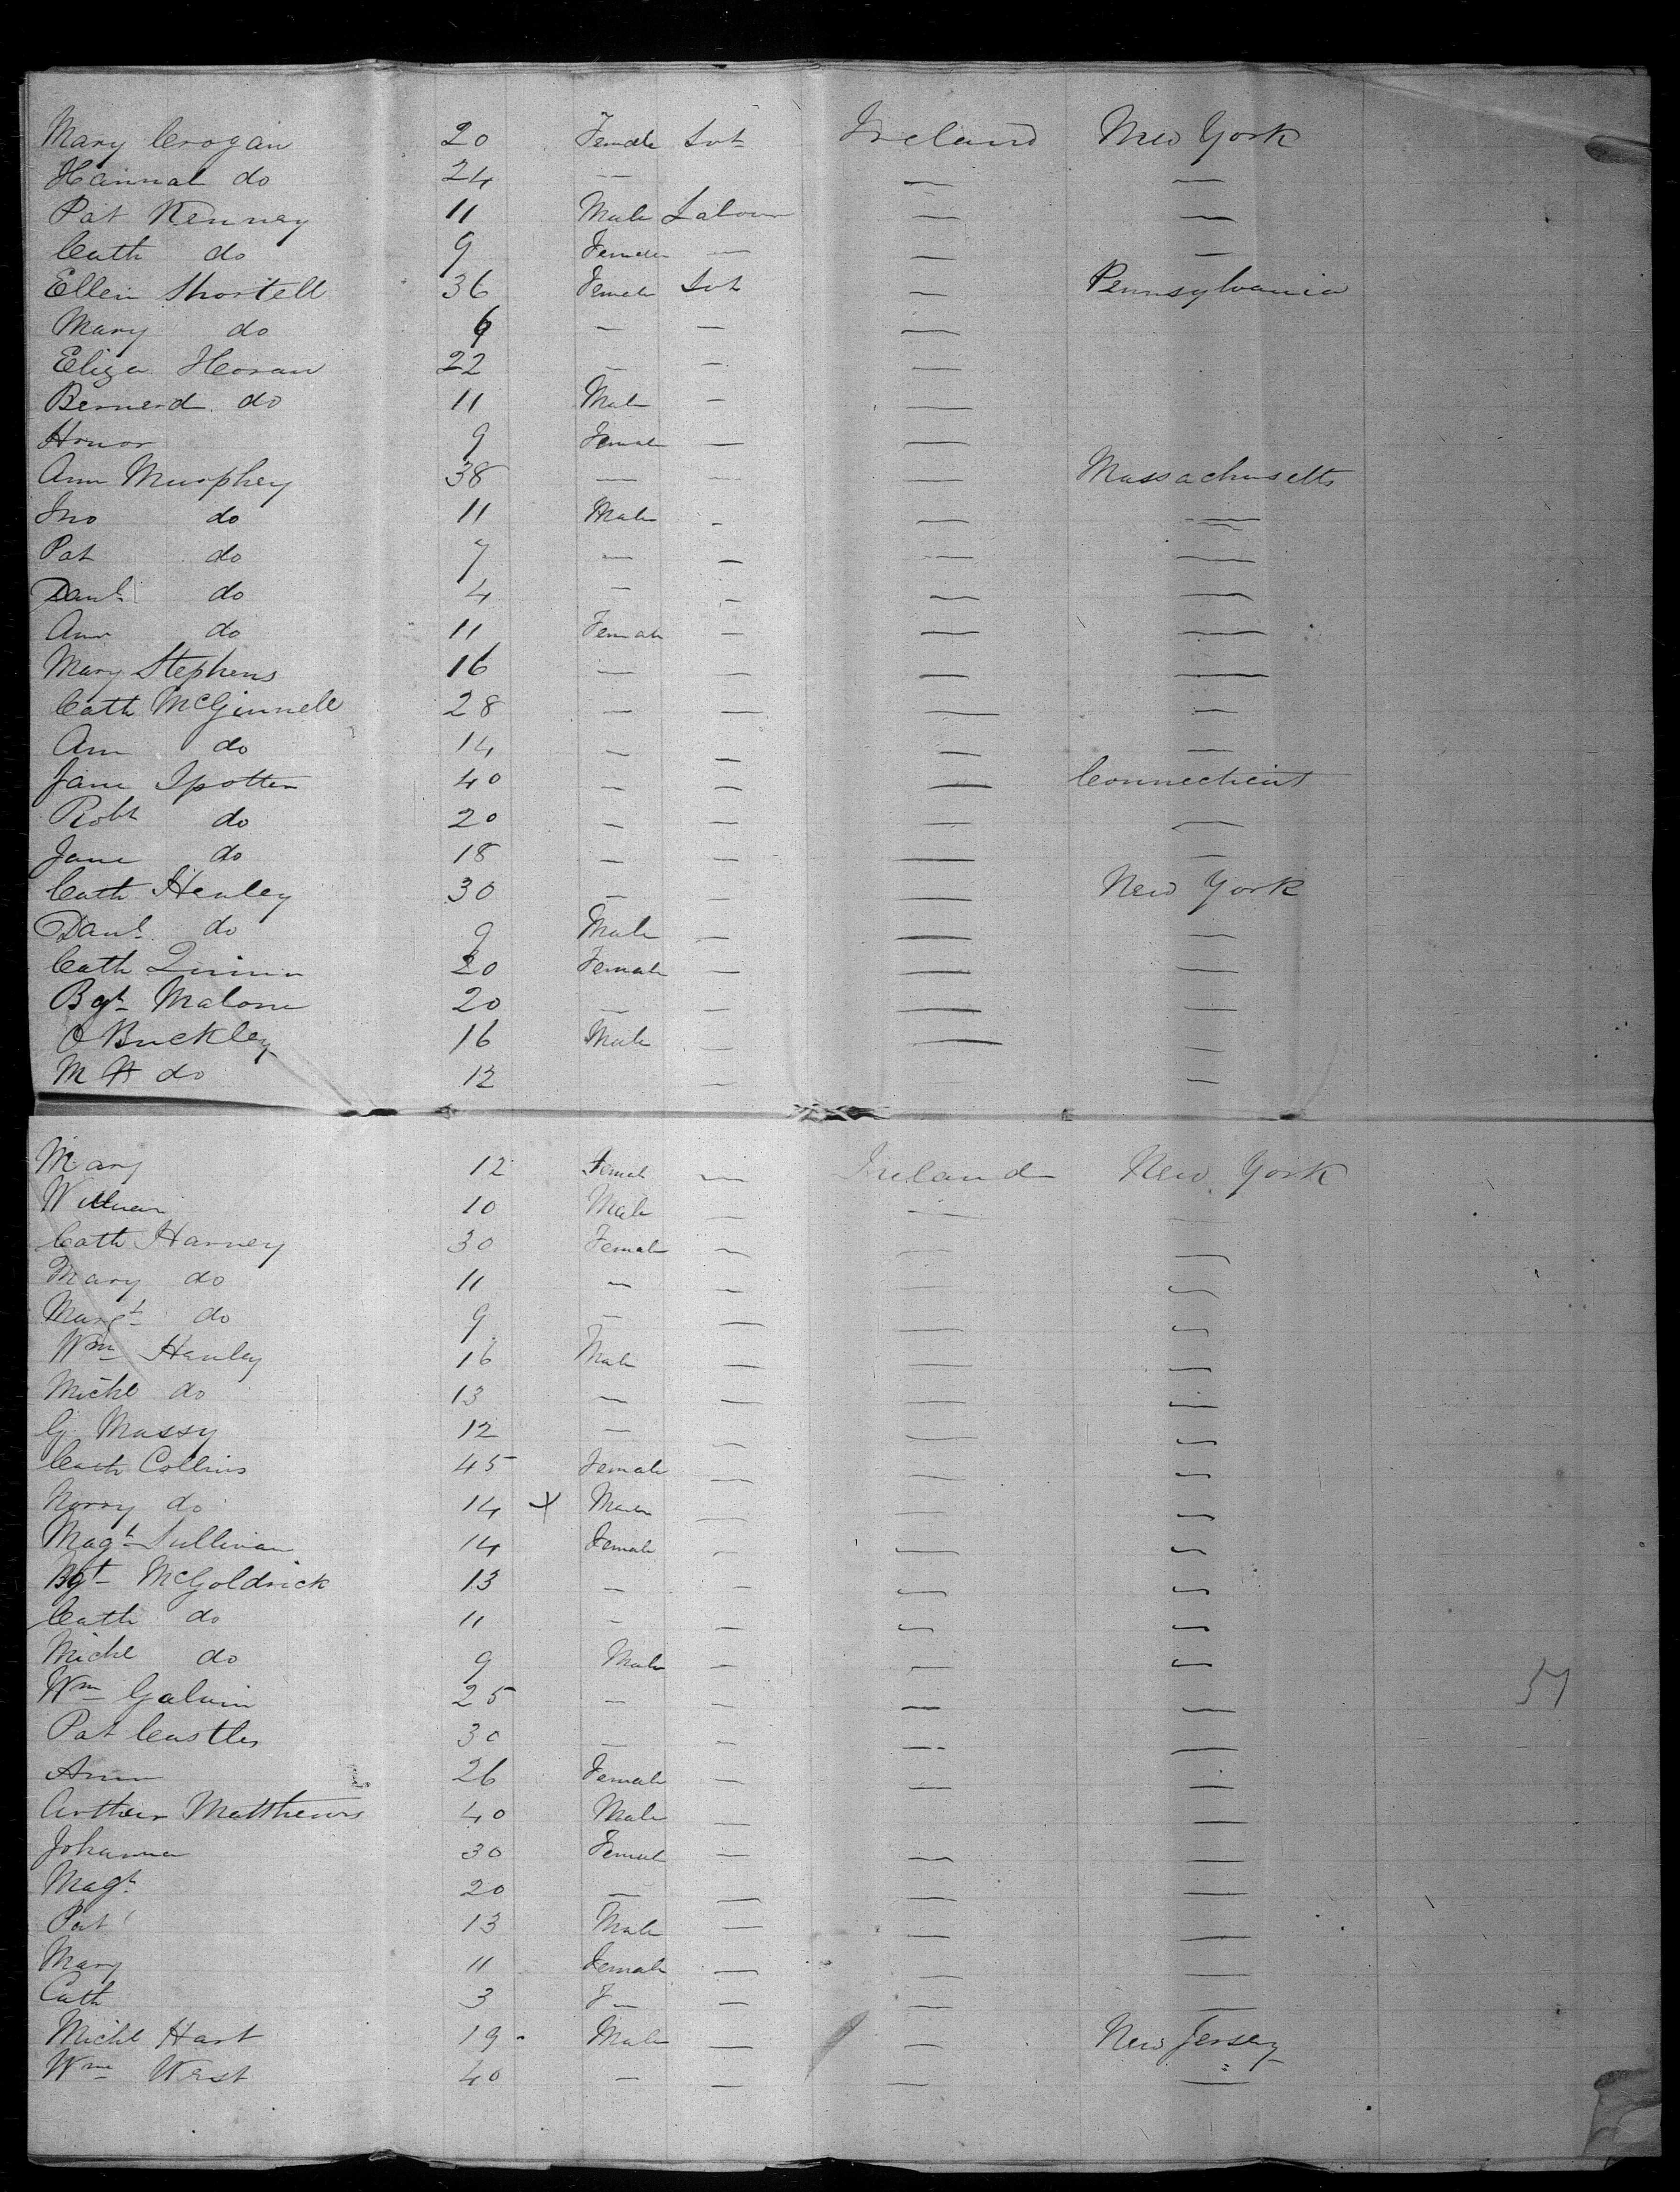 Mary Crogan 20 Female Svt Ireland New York
Hannah do 24 — — —
Pat Kenney 11 Male Labour — —
Cath do 9 Female — — —
Ellen Shortell 36 Female Svt — Pennsylvania
Mary do 6 — — —
Eliza Horan 22 — — —
Bernerd do 11 Male — —
Honor 9 Female — —
Ann Murphey 38 — — — Massachusetts
Jno do 11 Male — — —
Pat do 7 — — — —
Danl do 4 — — — —
Ann do 11 Female — — —
Mary Stephens 16 — — — —
Cath McGinnell 28 — — — —
Ann do 14 — — — —
Jane Spotten 40 — — — Connecticut
Robt do 20 — — — —
Jane do 18 — — — —
Cath Henley 30 — — — New York
Danl do 9 Male — — —
Cath Quinn 20 Female — — —
Bgt Malone 20 — — — —
O Buckley 16 Male — — —
M do 12 — —
Mary 12 Female — Ireland New York
William 10 Male — — —
Cath Harney 30 Female — — —
Mary do 11 — — — —
Margt do 9 — — — —
Wm Hanley 16 Male — — —
Michl do 13 — — — —
G Massy 12 — — — —
Cath Collins 45 Female — — —
Norry do 14 x Male — — —
Magt Sullivan 14 Female — — —
Bgt McGoldrick 13 — — — —
Cath do 11 — — — —
Michl do 9 Male — — —
Wm Galvin 25 — — — —
Pat Castles 30 — — — —
Ann 26 Female — — —
Arthur Matthews 40 Male — —
Johanna 30 Female — — —
Magt 20 — — — —
Pat 13 Male — — —
Mary 11 Female — — —
Cath 3 F— — — —
Michl Hart 19 Male — — New Jersey
Wm West 40 — — — —